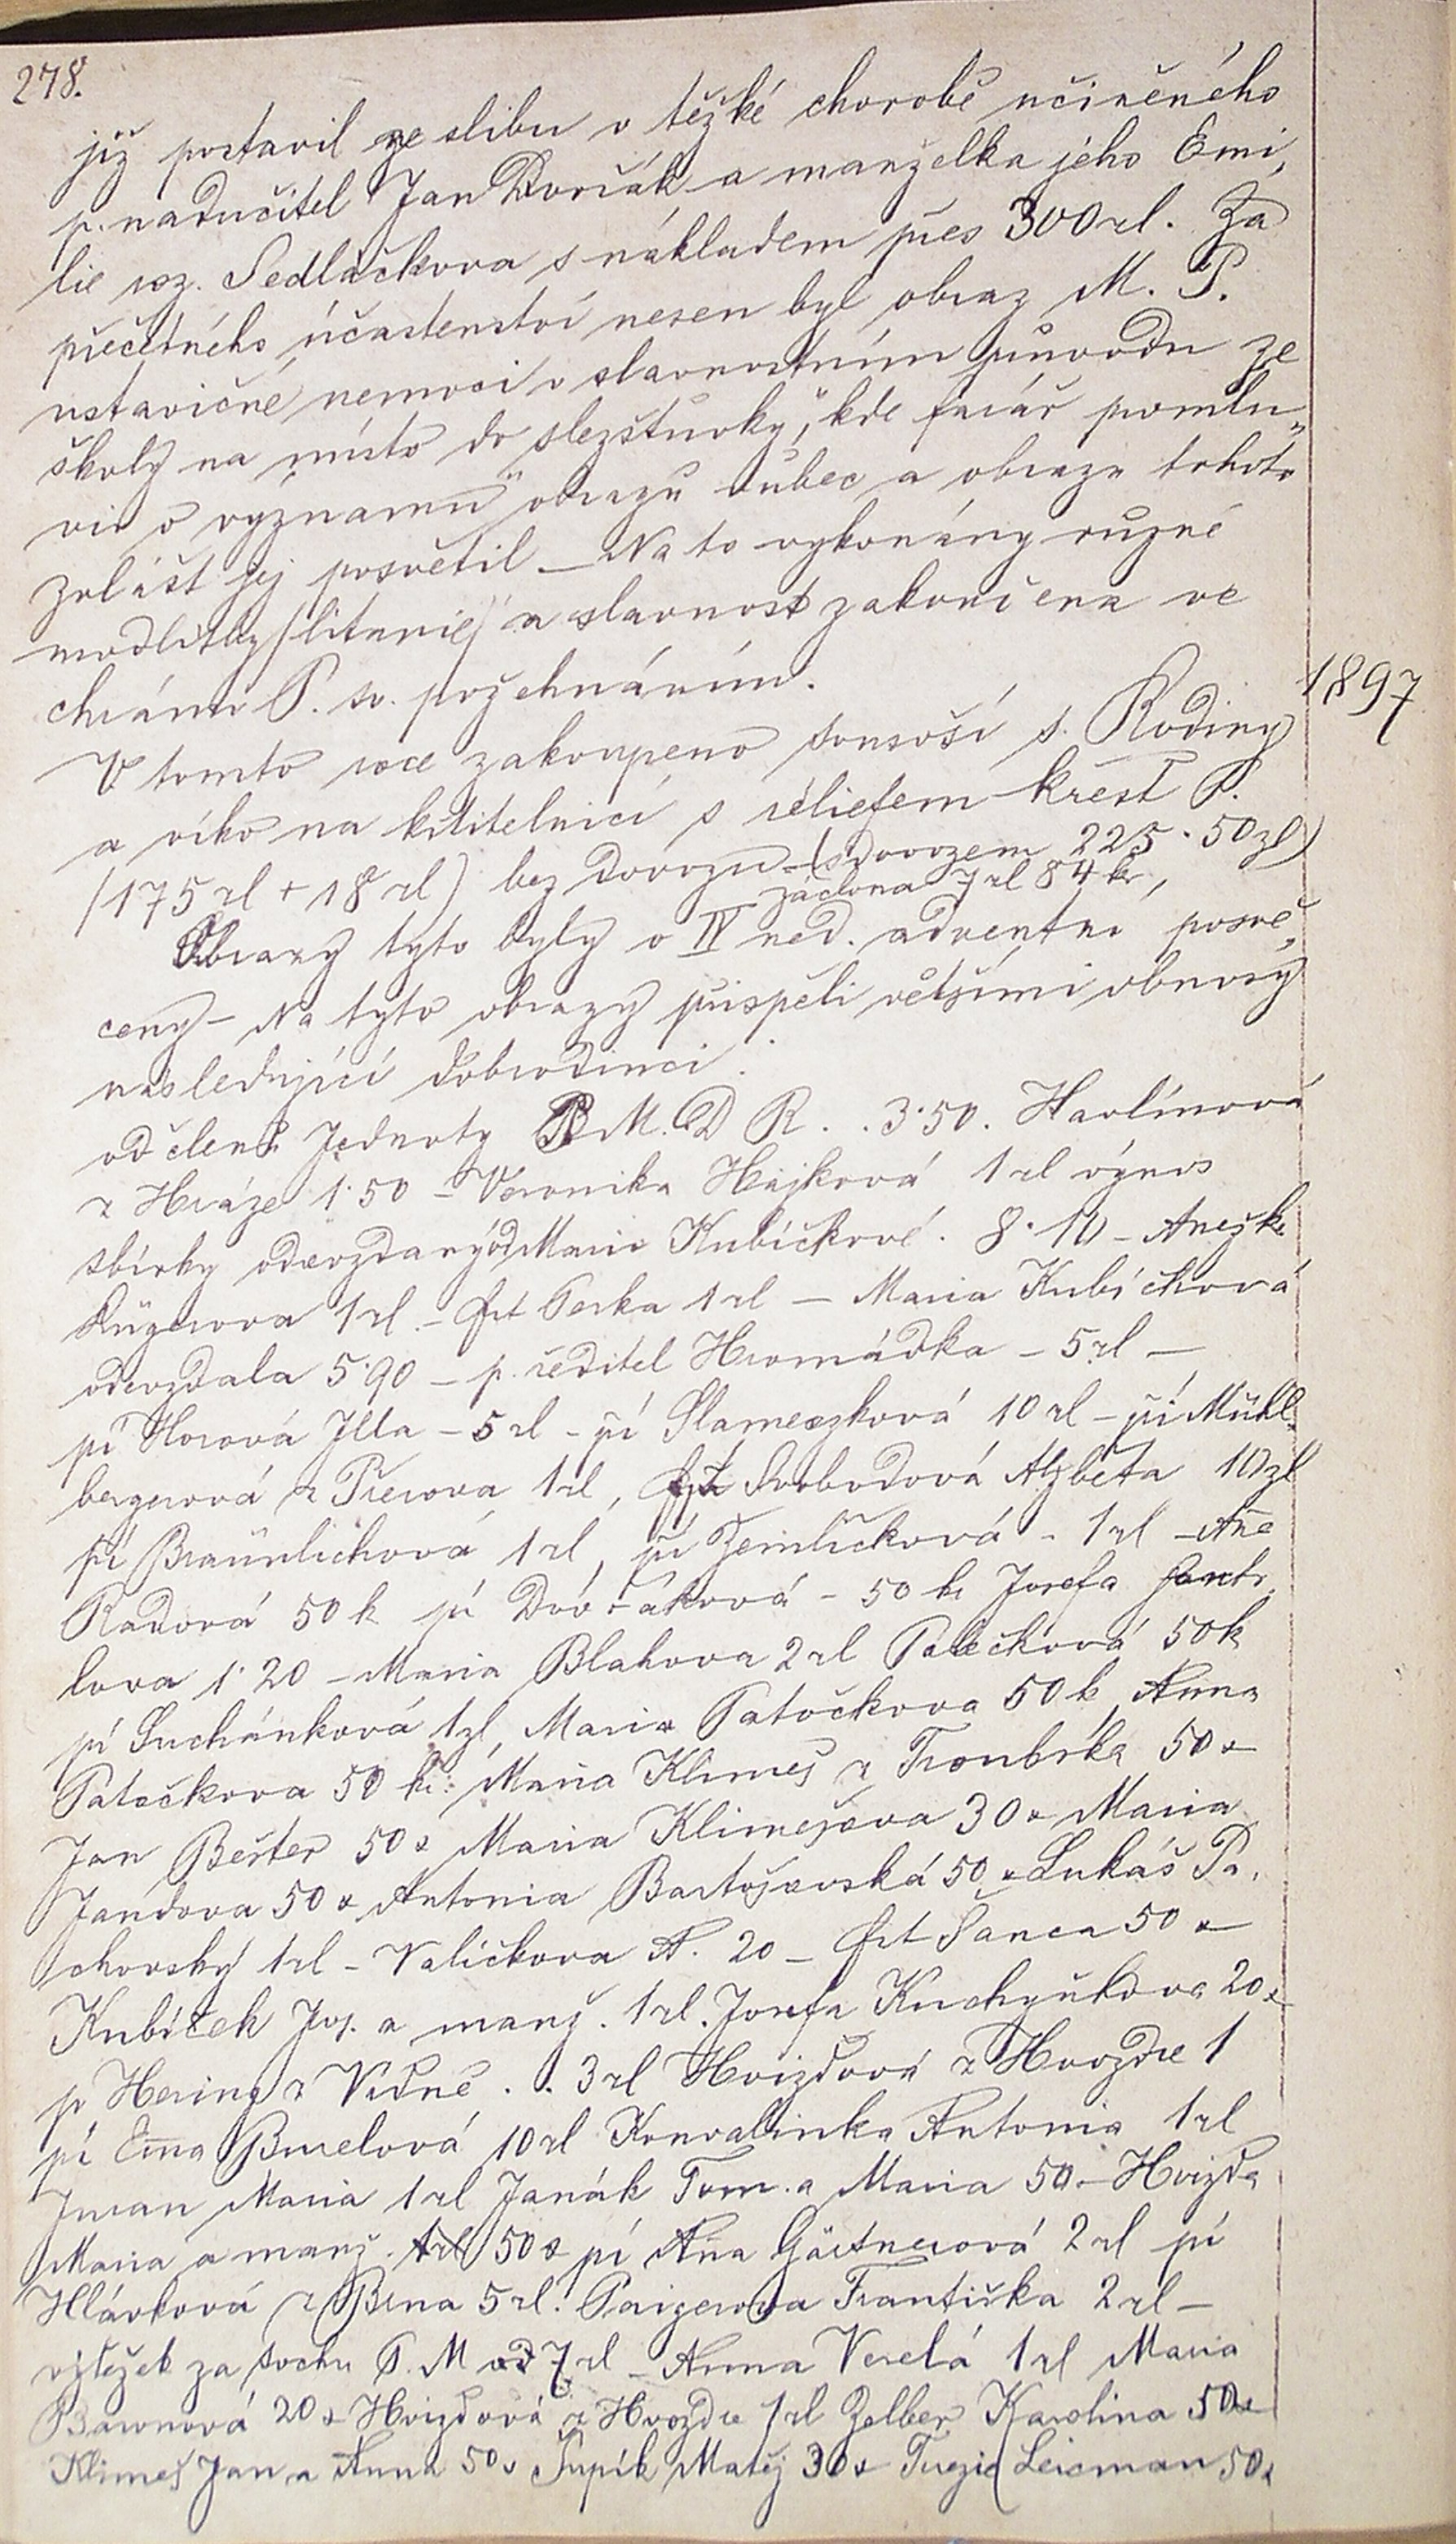 278.
již postavil ze slibu v těžké chorobě učiněného
p. nadučitel Jan Dvořák a manželka jeho Emi,
lie roz. Sedláčkova s nákladem přes 300 zl. Za
přečetného účastenství nesen byl obraz M. P.
ustavičné nemoci v slavnostním průvodu ze
školy na místo do „slezšturky", kde farář promlu„
vil o významu obrazů vůbec a obrazu tohoto
zvlášt jej posvětil – Na to vykonány různé
modlitby (litanie) a slavnost zakončena ve
chrámu P. sv. požehnáním.
1897
V tomto roce zakoupeno sousoší s. Rodiny
a víko na křtitelnici s reliefem křest P.
(175 zl + 18 zl) bez dovozu – (s dovozem 225·50 zl)
záclona 7 zl 84 kr,
Obrazy tyto byly v IV ned. adventní posvě„
ceny – Na tyto obrazy přispěli většími obnosy
následující dobrodinci:
od členů Jednoty B M. D R. . 3·50. Havlínová
z Hráze 1·50 – Veronika Hájková 1 zl výnos
sbírky odevzdaný od Marie Kubíčkové. 8·10 – Anežka
1 zl – frt Perka 1 zl – Maria Kubíčková
odevzdala 5·90 – p. ředitel Hromádka – 5 zl –
pí Horová Illa – 5 zl – pí Slameczková 10 zl – pí Mühl„
bergerová z Přerova 1 zl, Svobodová Alzbeta 10 zl
pí Bräunlichová 1 zl, pí Zemličková – 1 zl – Ane
Radová 50 k pí Dvořáková – 50 kr Josefa
lova 1·20 – Maria Blahova 2 zl Palečková 50 k
pí Suchánková 1 zl, Maria Patočkova 50 k Anna
Patočkova 50 kr: Maria Klimeš z Troubska 50 x
Jan Bešter 50 x Maria Klimešova 30 x Maria
Jandova 50 x Antonia Bartoševská 50 x Lukáš Pa,
chovský 1 zl – Valíčkova A. 20 – frt Šanca 50 x
Kubíček Jos. a manž. 1 zl. Josefa Kuchyňkova 20 x
p Hering z Vídně . . 3 zl Hvizdová z Hvozdce 1
pí Ema Burelová 10 zl Konvalinka Antonia 1 zl
Juran Maria 1 zl Janák Tom. a Maria 50 – Hvizda
Maria a manž. 50 x pí Ana Gärtnerová 2 zl pí
Hlávková z Brna 5 zl. Paigerova Františka 2 zl –
výtežek za sochu P. M od 7 zl – Anna Veselá 1 zl Maria
Baronová 20 x Hvizdová z Hvozdce 1 zl Zelber Karolina 50 x
Klimeš Jan a Anna 50 x Šupík Matěj 30 x Leicman 50 x